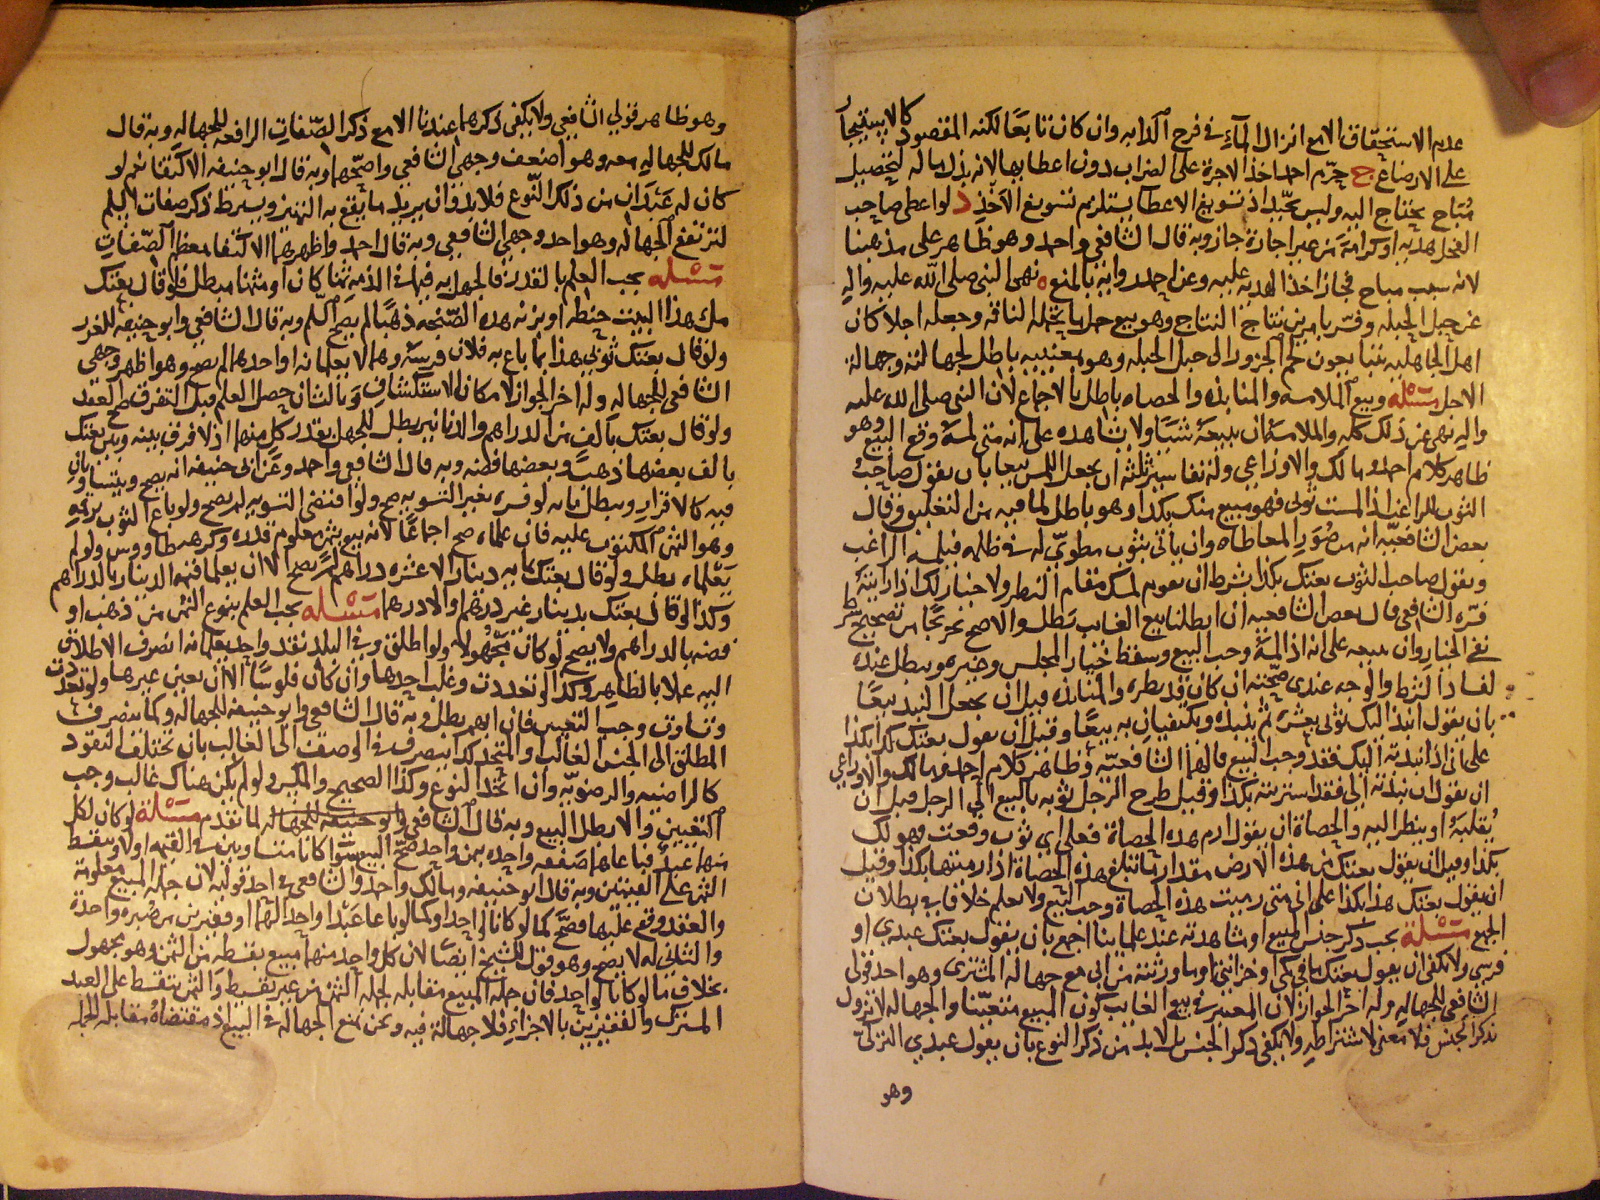 عليه الاستحقاق الا مع انزال الماء في فرج الدابه وان كان تابعا لكنه المقصود كالاستيجار
على الارضاع ج حرم احمد اخذ الاجرة على الضراب دون اعطايها لانه بذل ماله لتحصيل
مباح يحتاج اليه وليس بجيد اذ تسويغ الاعطا يستلزم تسويغ الاخذ د لو اعطى صاحب
الفحل هديه او كرامة من غير اجارة جاز وبه قال الشافعي واحمد وهو ظاهر على مذهبنا
لانه سبب مباح فجاز اخذ الهديه عليه وعن احمد روايه بالمنع ه نهى النبي صلى الله عليه واله
عن حبل الحبله وفسر بامرين نتاج النتاج وهو بيع حمل ما تحمله الناقه وجعله اجلا كان
اهل الجاهليه يتبايعون لحم الجزور الى حبل الحبله وهو بمعنييه باطل لجهالته وجهالة
الاجل مسئله وبيع الملامسه والمنابذه والحصاه باطل بالاجماع لان النبي صلى الله عليه
واله نهى عن ذلك كله والملامسة ان يبيعه شيئا ولا يشاهده على انه متى لمسه وقع البيع وهو
ظاهر كلام احمد ومالك والاوزاعي وله تفاسير ثلثه ان يجعل اللمس بيعا بان يقول صاحب
الثوب للراغب اذا لمست ثوبي فهو مبيع منك بكذا وهو باطل لما فيه من التعليق وقال
بعض الشافعيه انه من صور المعاطاه وان ياتي بثوب مطوي له في ظلمه فيلمسه الراغب
ويقول صاحب الثوب بعتك بكذا بشرط ان يقوم لمسك مقام النظر ولا خيار لك اذا رايته
فسره الشافعي قال بعض الشافعيه ان ابطلنا بيع الغايب بطل والا صح تخريجا من تصحيح شرط
نفي الخيار وان يبيعه على انه اذا لمسه وجب البيع وسقط خيار المجلس وغيره ويبطل عنده
لفساد الشرط والوجه عندي صحته ان كان قد نظره والمنابذه قيل ان يجعل النبذ بيعا
بان يقول انبذ اليك ثوبي بعشره ثم ينبذه ويكتفيان به بيعا وقيل ان يقول بعتك كذا بكذا
على اني اذا نبذته اليك فقد وجب البيع قالهما الشافعيه وظاهر كلام احمد ومالك والاوزاعي
ان يقول ان نبذته الي فقد اشتريته بكذا وقيل طرح الرجل ثوبه بالبيع الى الرجل قبل ان
يقلبه او ينظر اليه والحصاة ان يقول ارم هذه الحصاة فعلى اي ثوب وقعت فهو لك
بكذا وقيل ان يقول بعتك من هذه الارض مقدار ما تبلغ هذه الحصاة اذا رميتها بكذا وقيل
ان يقول بعتك هذا بكذا على اني متى رميت هذه الحصاة وجب البيع ولا نعلم خلافا في بطلان
الجميع مسئلة يجب ذكر جنس المبيع او مشاهدته عند علماينا اجمع بان يقول بعتك عبدي او
فرسي ولا يكفي ان يقول بعتك ما في كمي او خزانتي او ما ورثته من ابي مع جهالة المشتري وهو احد قولي
الشافعي للجهاله وله اخر الجواز لان المعتبر في بيع الغايب كون المبيع متعينا والجهاله لا تزول
بذكر الجنس فلا معنى لاشتراطه ولا يكفي ذكر الجنس بل لا بد من ذكر النوع بان يقول عبدي التركي
وهو
وهو ظاهر قول الشافعي ولا يكفي ذكرهما عندنا الا مع ذكر الصفات الرافعه للجهاله وبه قال
مالك للجهاله معه وهو اضعف وجهي الشافعي واصحهما وبه قال ابو حنيفه الاكتفا ثم لو
كان له عبدان من ذلك النوع فلا بد وان يزيد ما يقع به التميز ويشرط ذكر صفات السلم
لترتفع الجهاله وهو احد وجهي الشافعي وبه قال احمد واظهرهما الاكتفا بمعظم الصفات
مسئله يجب العلم بالقدر فالجهل به فيما في الذمه ثمنا كان او مثمنا مبطل فلو قال بعتك
ملء هذا البيت حنطه او بزنه هذه الصنجه ذهبا لم يصح السلم وبه قال الشافعي وابو حنيفه للغرر
ولو قال بعتك ثوبي هذا بما باع به فلان فرسه وهما لا يعلمانه او احدهما لم يصح وهو اظهر وجهي
الشافعي للجهاله وله اخر الجواز لامكان الاستكشاف وبالثاني حصل العلم قبل التفرق صح العقد
ولو قال بعتك بالف من الدراهم والدنانير بطل للجهل بقدر كل منهما اذ لا فرق بينه وبين بعتك
بالف بعضها ذهب وبعضها فضه وبه قال الشافعي واحمد وعن ابي حنيفه انه يصح ويتساويان
فيه كالاقرار ويبطل بانه لو فسره بغير التسويه صح ولو اقتضى التسويه لم يصح ولو باع الثوب برقمه
وهو الثمن المكتوب عليه فان علماه صح اجماعا لانه بيع بثمن معلوم قدره وكرهه طاووس ولو لم
يعلماه بطل ولو قال بعتك بمايه دينار الا عشره دراهم لم يصح الا ان يعلما قيمه الدينار بالدراهم
وكذا لو قال بعتك بدينار غير درهم او الا درهما مسئله يجب العلم بنوع الثمن من ذهب او
فضه بالدراهم ولا يصح لو كان مجهولا ولو اطلق وفي البلد نقد واحد يعلمانه انصرف الاطلاق
اليه عملا بالظاهر وكذا لو تعددت وغلب احدها وان كان فلوسا الا ان يعين غيرها ولو تعددت
وتساوت وجب التعيين فان ابهم بطل وبه قال الشافعي وابو حنيفه للجهاله وكما ينصرف
المطلق الى الجنس الغالب والمتحد كذا ينصرف في الوصف الى الغالب بان تختلف النقود
كالراضيه والرضويه وان اتحد النوع وكذا الصحيح والمكسر ولو لم يكن هناك غالب وجب
التعيين والا بطل البيع وبه قال الشافعي وابو حنيفه للجهاله لما تقدم مسئلة لو كان لكل
منهما عبد فباعاهما صفقه واحده بثمن واحد صح البيع سوا كانا متساويين في القيمه او لا ويقسط
الثمن على القيمتين وبه قال ابو حنيفه ومالك واحمد والشافعي في احد قوليه لان جمله المبيع معلومة
والعقد وقع عليها فصح كما لو كانا لواحد وكما لو باعا عبدا واحدا لهما او قفيزين من صبره واحدة
والثاني له لا يصح وهو قول للشيخ ايضا لان كل واحد منهما مبيع بقسطه من الثمن وهو مجهول
بخلاف ما لو كانا لواحد فان جمله المبيع مقابله لجمله الثمن من غير تقسيط والثمن يتقسط على العبد
المشترك والقفيزين بالاجزاء فلا جهالة فيه ونحن نمنع الجهالة في البيع اذ مقتضاه مقابله الجمله